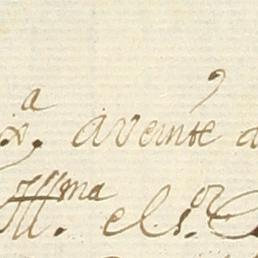 x.ª aveinte d
Ill.ma el s.or